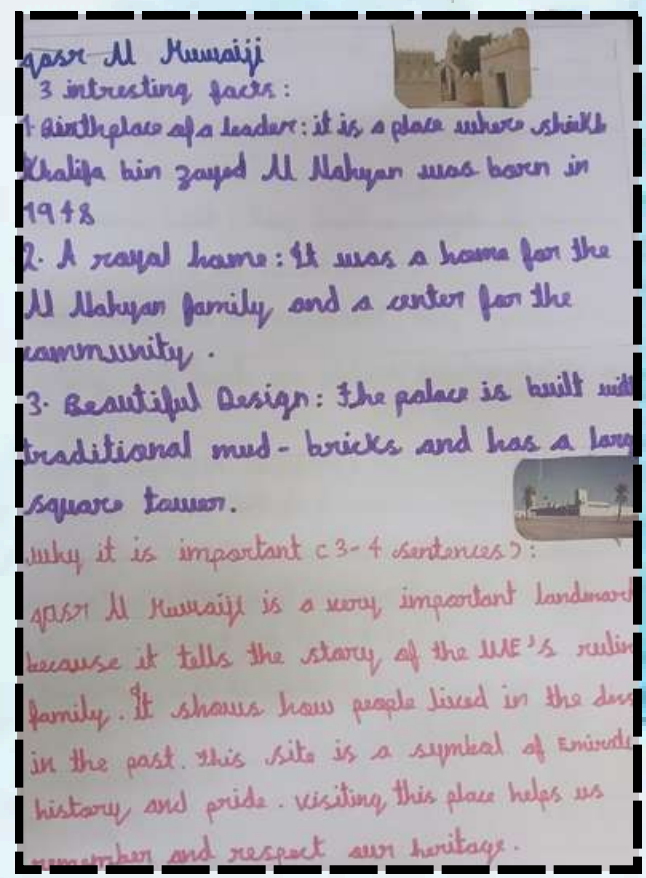 qasr Al Muwaiji
3 intresting facts:
1 Birthplace of a leader: it is a place where shiekh
Khalifa bin zayed Al Nahyan was born in
1948
2. A royal home: It was a home for the
Al Nahyan family and a center for the
community.
3. Beautiful Design: the palace is built with
traditional mud-bricks and has a larg
square tower.
why it is important (3-4 sentences):
qasr Al Muwaiji is a very important landmark
because it tells the story of the UAE's rulin
family. It shows how people lived in the des
in the past. this site is a symbol of Emirat
history and pride. visiting this place helps us
remember and respect our heritage.